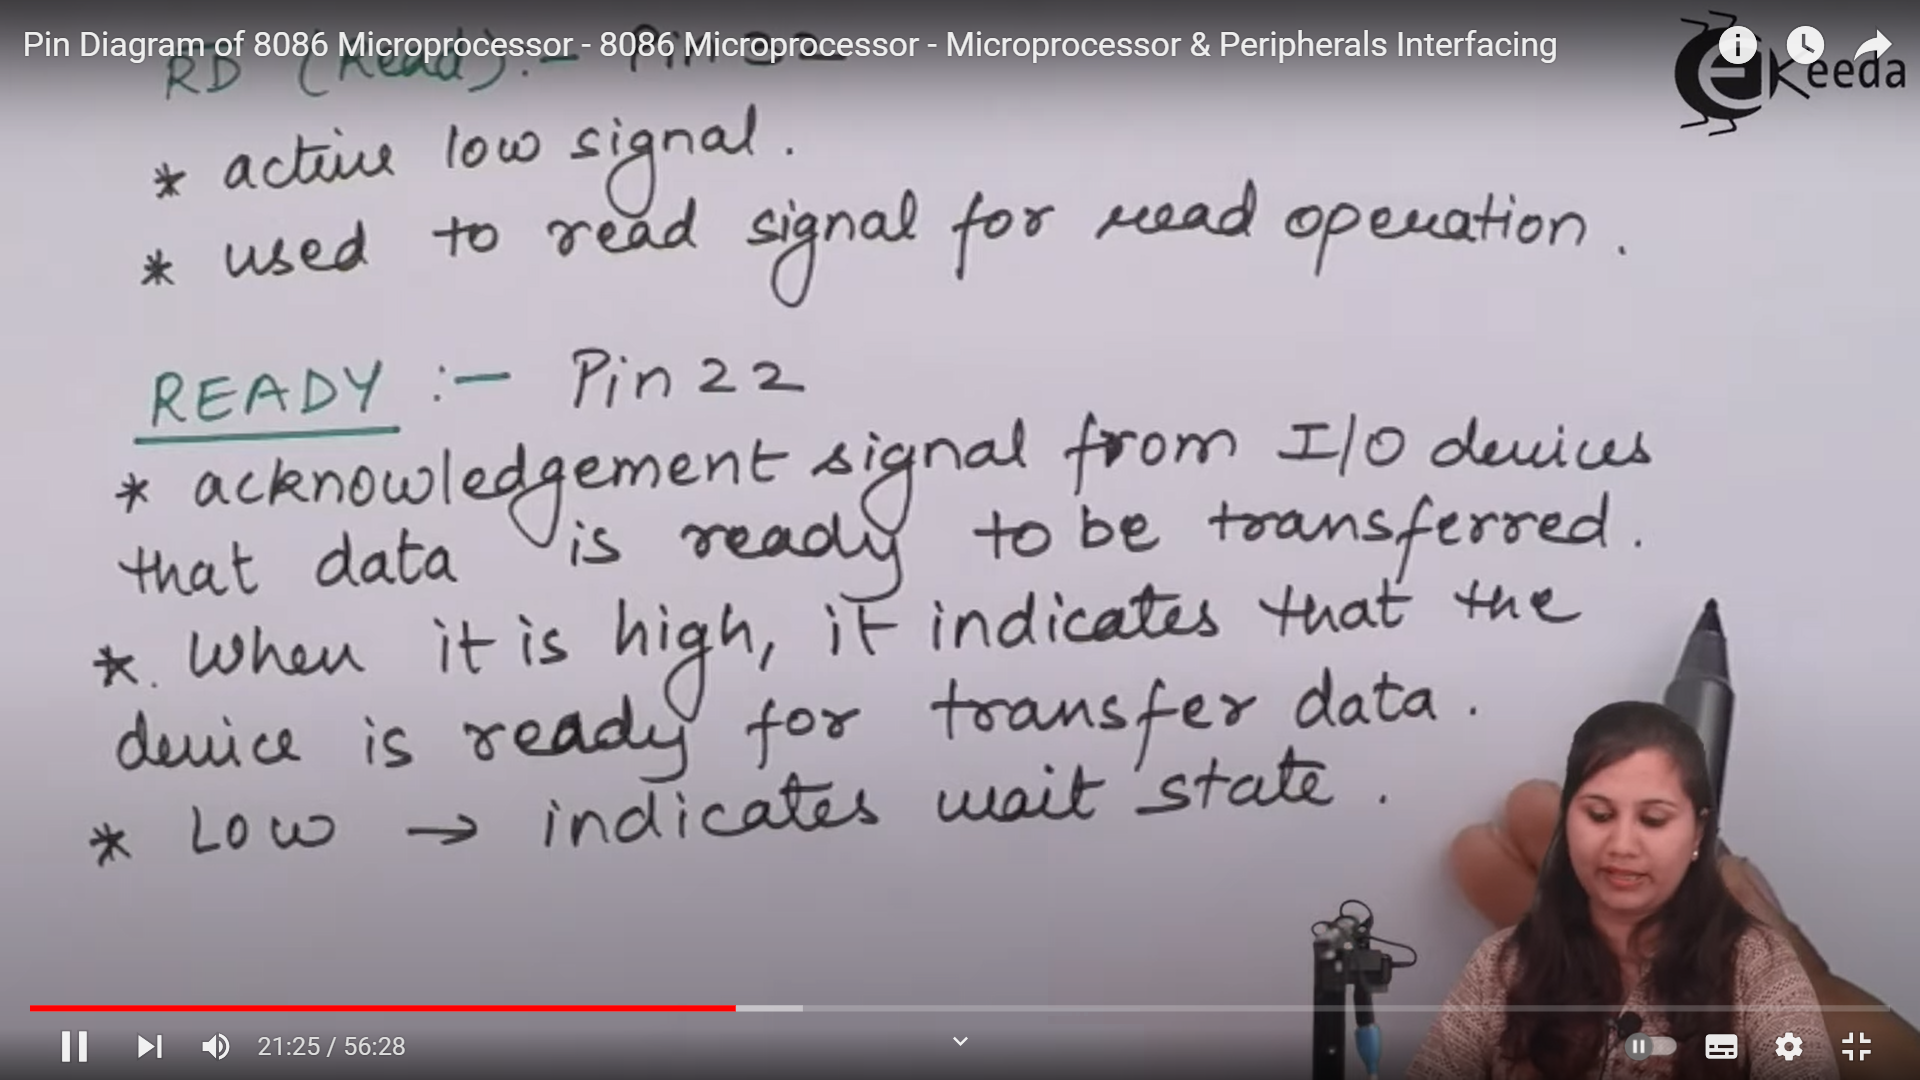 Pin Diagram of 8086 Microprocessor - 8086 Microprocessor - Microprocessor & Peripherals Interfacing
eKeeda
RD (Read) :- Pin 32
* active low signal.
* used to read signal for read operation.
READY :- Pin 22
* acknowledgement signal from I/O devices
that data is ready to be transferred.
*. When it is high, it indicates that the
device is ready for transfer data.
* Low → indicates wait state.
21:25 / 56:28